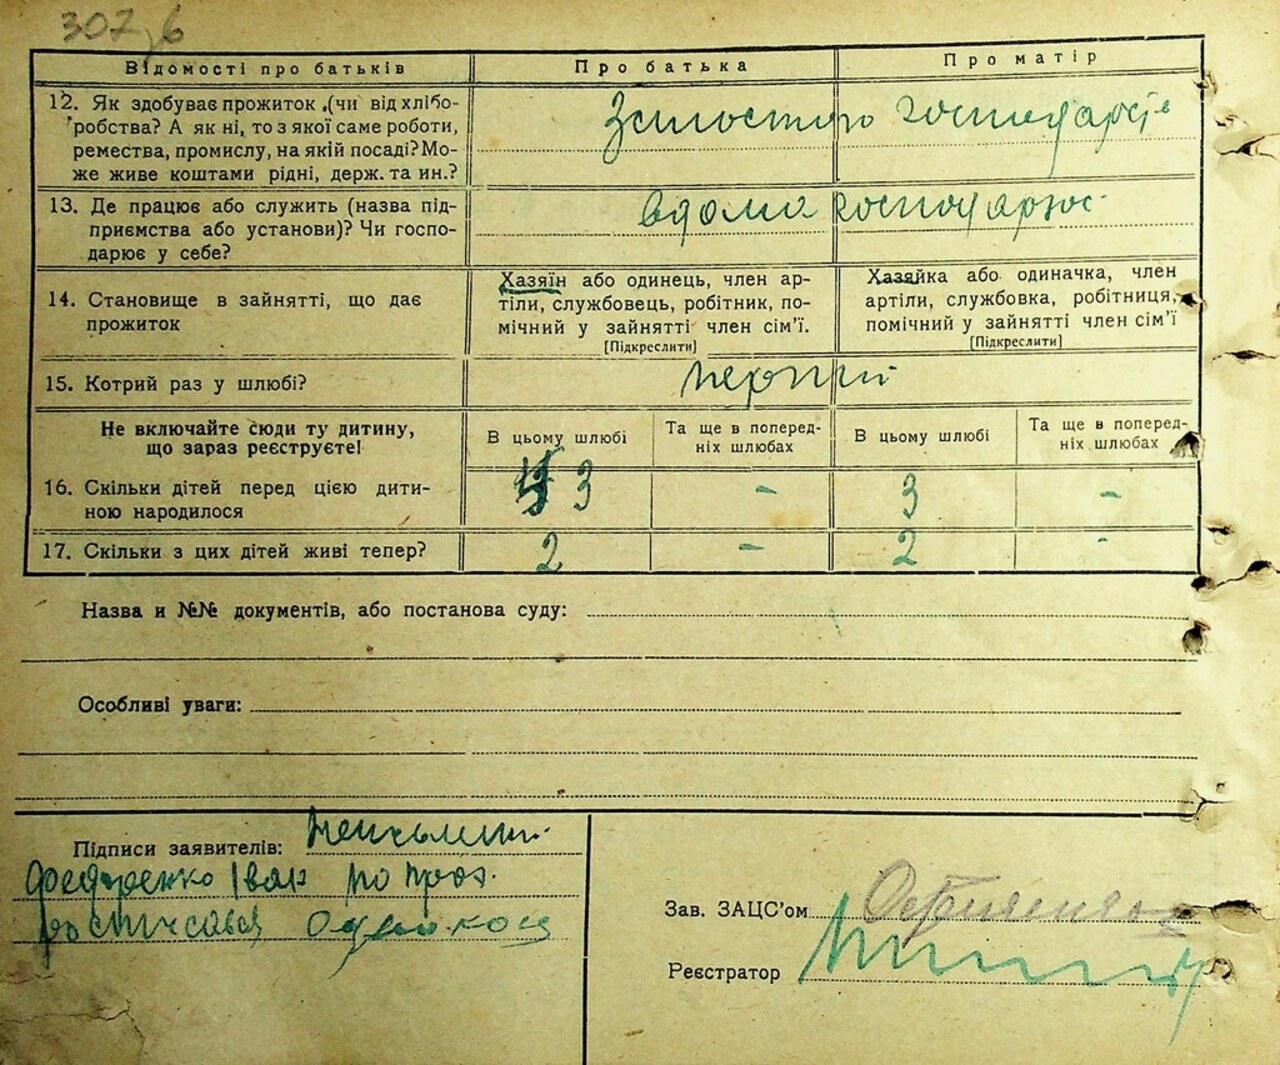 Відомості про батьків
Про батька
Про матір
12. Як здобуває прожиток (чи від хлібо-
робства? А як ні, то з якої саме роботи,
ремества, промислу, на якій посаді? Мо-
же живе коштами рідні, держ. та ин.?
господарств
13. Де працює або служить (назва під-
приємства або установи)? Чи госпо-
дарює у себе?
вдома господарює
14. Становище в зайнятті, що дає
прожиток
Хазяїн або одинець, член ар-
тіли, службовець, робітник, по-
мічний у зайнятті член сім'ї.
[Підкреслити]
Хазяйка або одиначка, член
артіли, службовка, робітниця,
помічний у зайнятті член сім'ї
[Підкреслити]
15. Котрий раз у шлюбі?
перший
Не включайте сюди ту дитину,
що зараз реєструєте!
В цьому шлюбі
Та ще в поперед-
ніх шлюбах
В цьому шлюбі
Та ще в поперед-
ніх шлюбах
16. Скільки дітей перед цією дити-
ною народилося
3
-
3
-
17. Скільки з цих дітей живі тепер?
2
-
2
-
Назва и №№ документів, або постанова суду:
Особливі уваги:
Підписи заявителів:
Федоренко Іван по
росписався
Зав. ЗАЦС'ом
Реєстратор